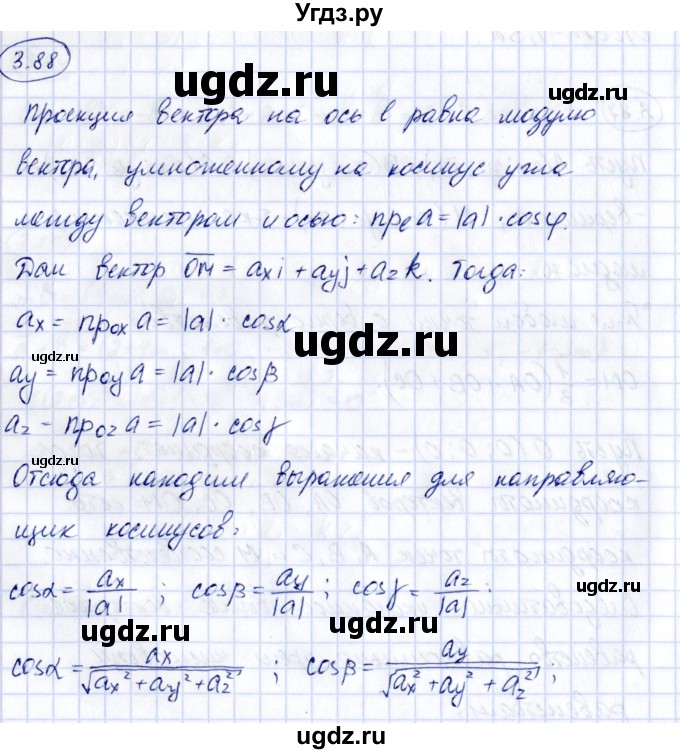 Угдз.ру
3.88
ugdz.ru
Проекция вектора на ось l равна модулю
вектора, умноженному на косинус угла
между вектором и осью: пр_l a = |a| · cosφ.
Дан вектор O͞M = a_x i + a_y j + a_z k. Тогда:
a_x = пр_ox a = |a| · cosα
ugdz.ru ugdz.ru
a_y = пр_oy a = |a| · cosβ
a_z - пр_oz a = |a| · cosγ
ugdz.ru
Отсюда находим выражения для направляю-
щик косинусов:
cosα = a_x / |a| ; cosβ = a_y / |a| ; cosγ = a_z / |a| :
ugdz.ru ugdz.ru
cosα = a_x / √(a_x² + a_y² + a_z²) ; cosβ = a_y / √(a_x² + a_y² + a_z²) ;
ugdz.ru